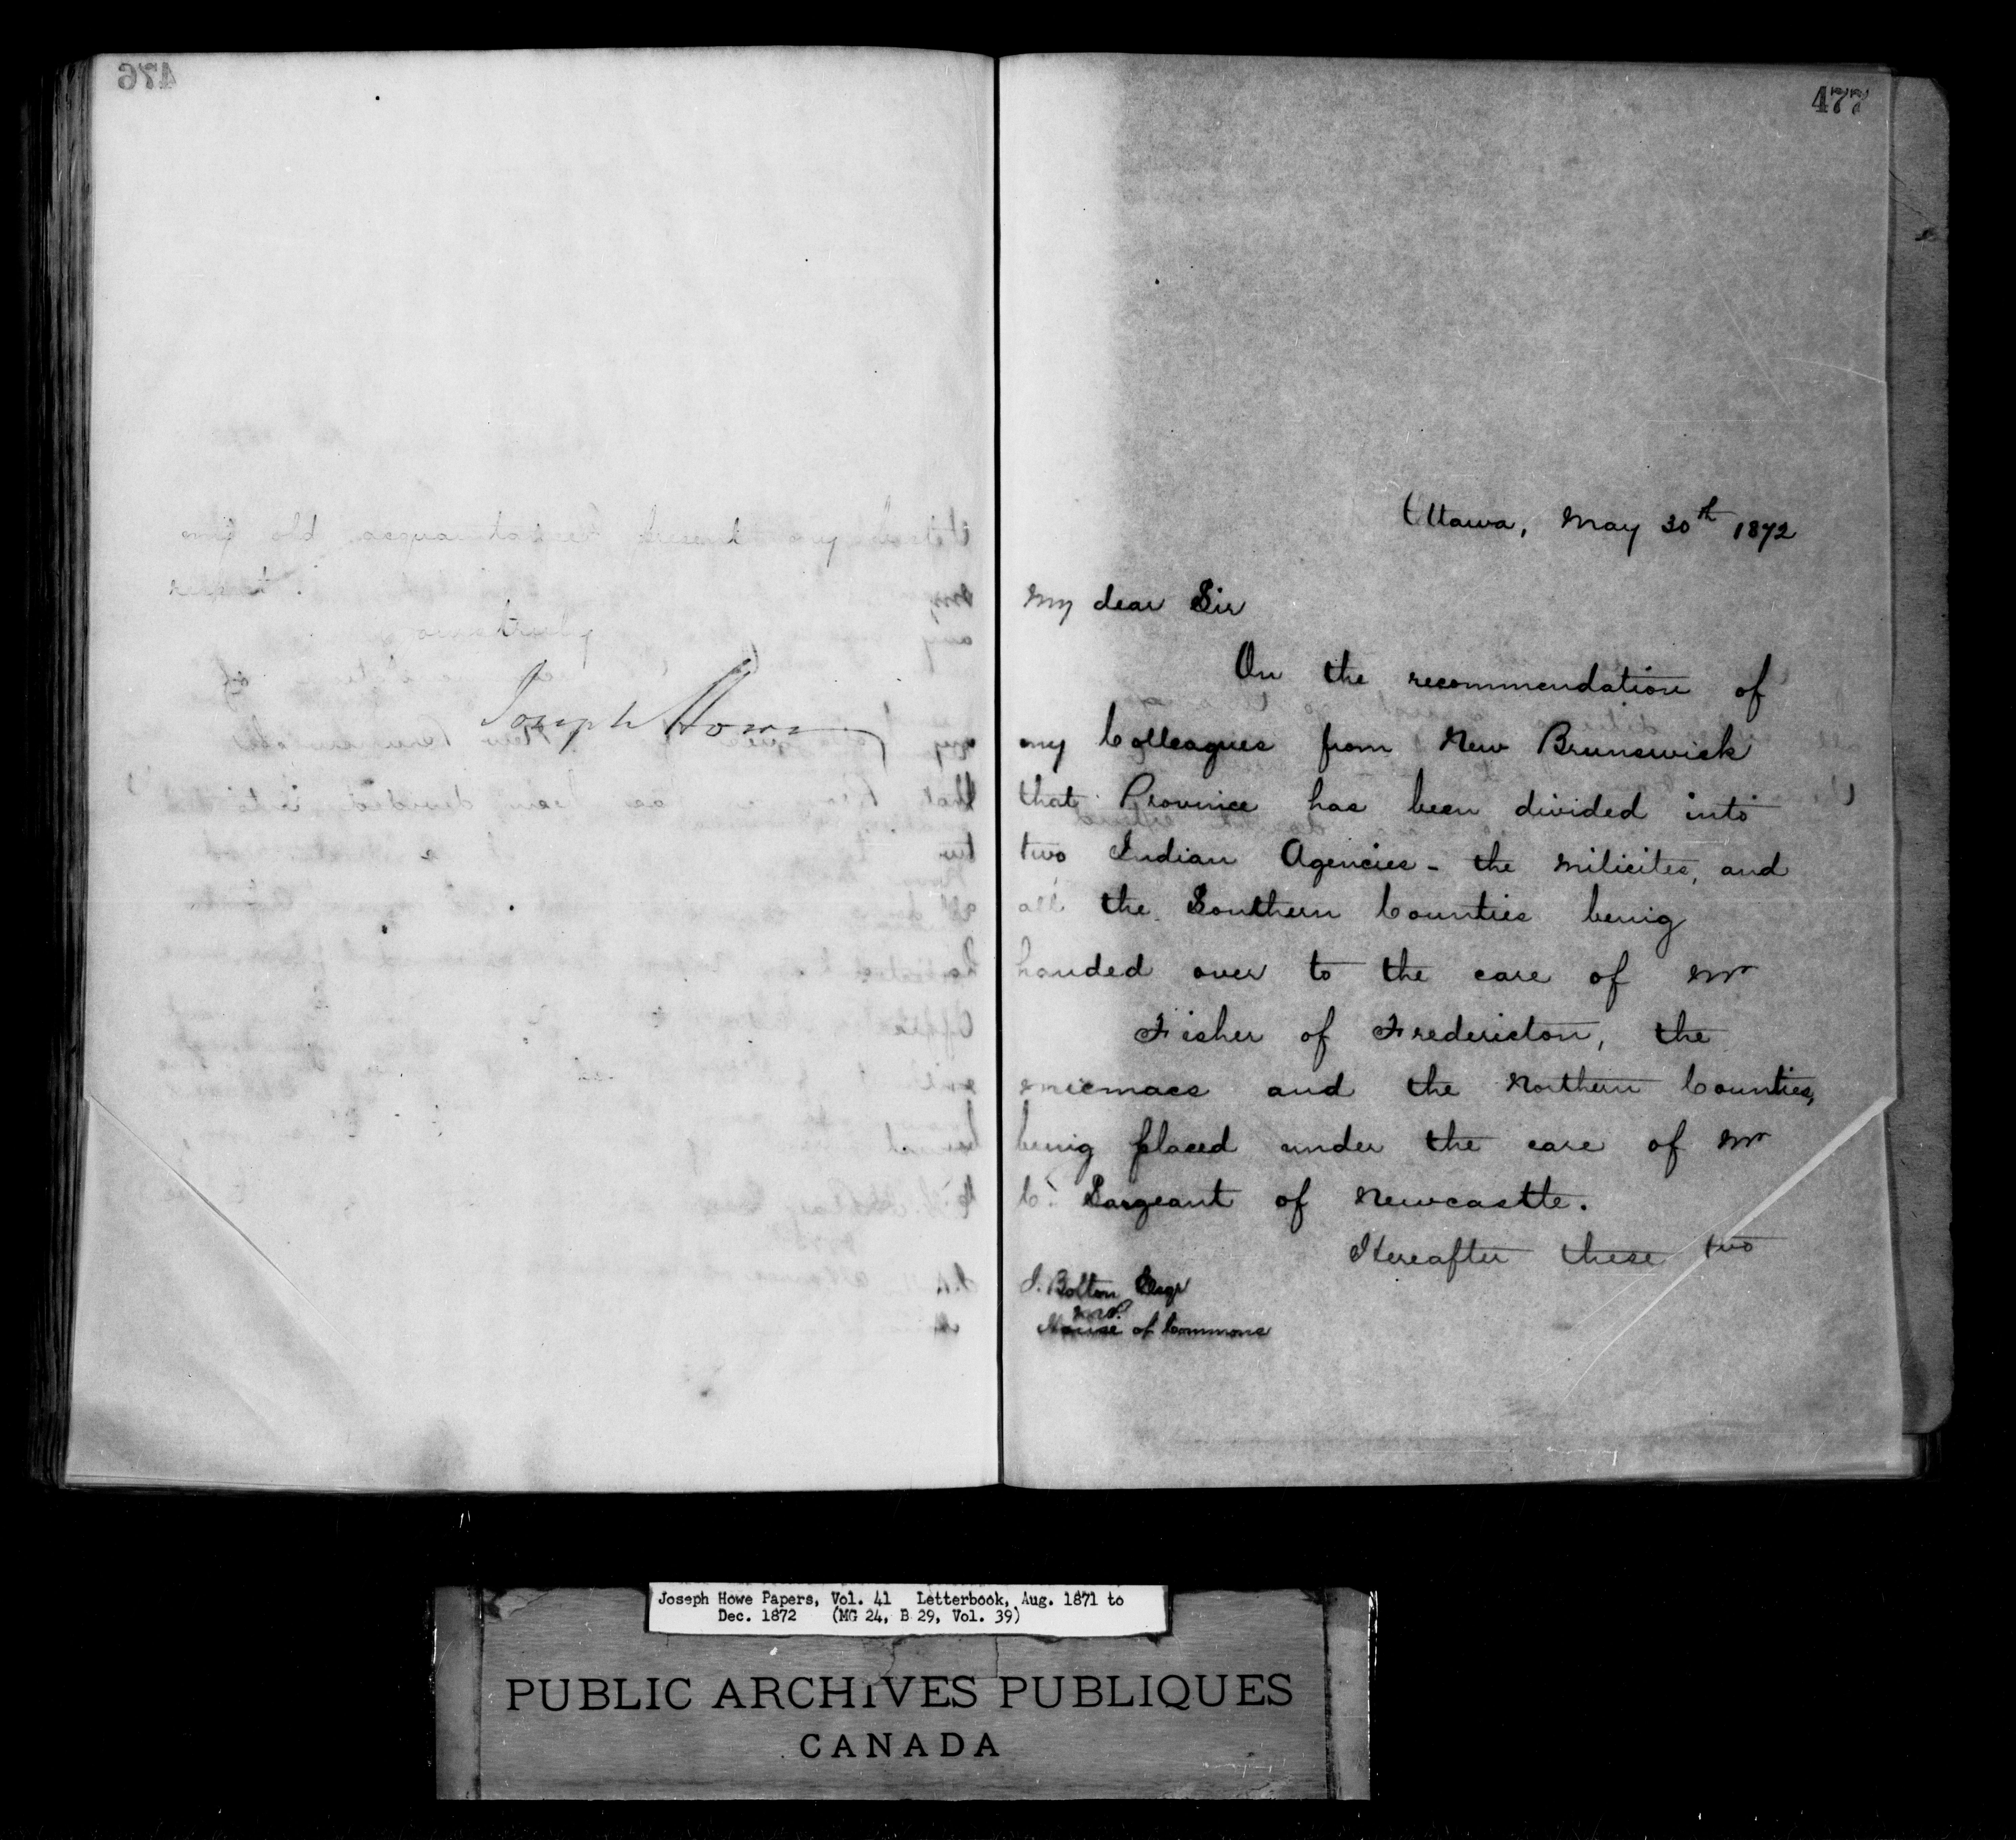 476
my old acquaintances present my best
respect.
Yours truly
Joseph Howe
477
Ottawa, May 30th 1872
My dear Sir
On the recommendation of
my Colleagues from New Brunswick
that Province has been divided into
two Indian Agencies - the Milicites, and
all the Southern Counties being
handed over to the care of Mr
Fisher of Fredericton, the
Micmacs and the Northern Counties,
being placed under the care of Mr
C. Sargeant of Newcastle.
Hereafter these two
J. Bolton Esqr
M.P.
House of Commons
Joseph Howe Papers, Vol. 41 Letterbook, Aug. 1871 to
Dec. 1872 (MG 24, B 29, Vol. 39)
PUBLIC ARCHIVES PUBLIQUES
CANADA